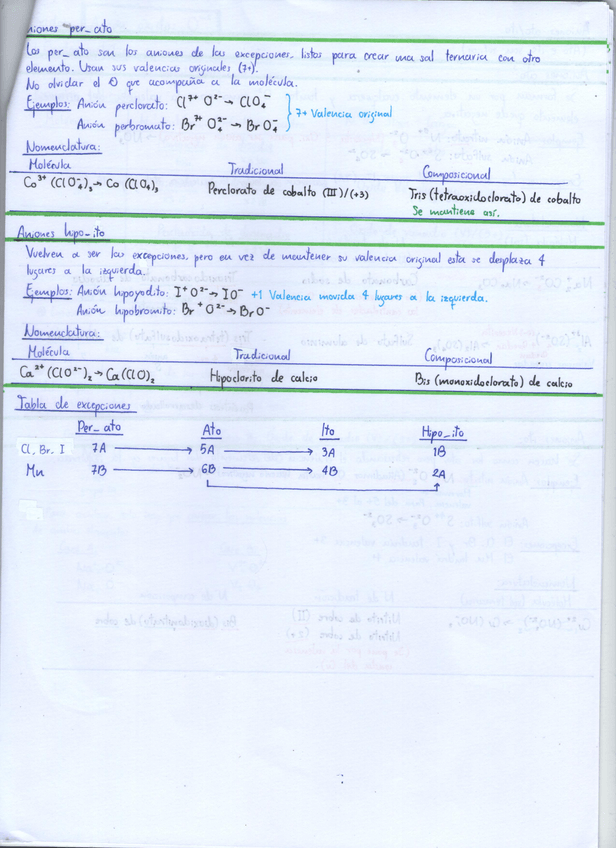 Aniones per_ato
Los per_ato son los aniones de las excepciones, listos para crear una sal ternaria con otro
elemento. Usan sus valencias originales (7+).
No olvidar el ⊖ que acompaña a la molécula.
Ejemplos: Anión perclorato: Cl⁷⁺ O²⁻ → ClO₄⁻
Anión perbromato: Br⁷⁺ O₄²⁻ → BrO₄⁻
7+ Valencia original
Nomenclatura:
Molécula Tradicional Composicional
Co³⁺(ClO₄⁻)₃ → Co(ClO₄)₃ Perclorato de cobalto (III)/(+3) Tris (tetraoxidoclorato) de cobalto
Se mantiene así.
Aniones hipo_ito
Vuelven a ser las excepciones, pero en vez de mantener su valencia original esta se desplaza 4
lugares a la izquierda.
Ejemplos: Anión hipoyodito: I⁺O²⁻ → IO⁻ +1 Valencia movida 4 lugares a la izquierda.
Anión hipobromito: Br⁺O²⁻ → BrO⁻
Nomenclatura:
Molécula Tradicional Composicional
Ca²⁺(ClO²⁻)₂ → Ca(ClO)₂ Hipoclorito de calcio Bis (monoxidoclorato) de calcio
Tabla de excepciones
Per_ato Ato Ito Hipo_ito
Cl, Br, I 7A → 5A → 3A 1B
Mn 7B → 6B → 4B 2A